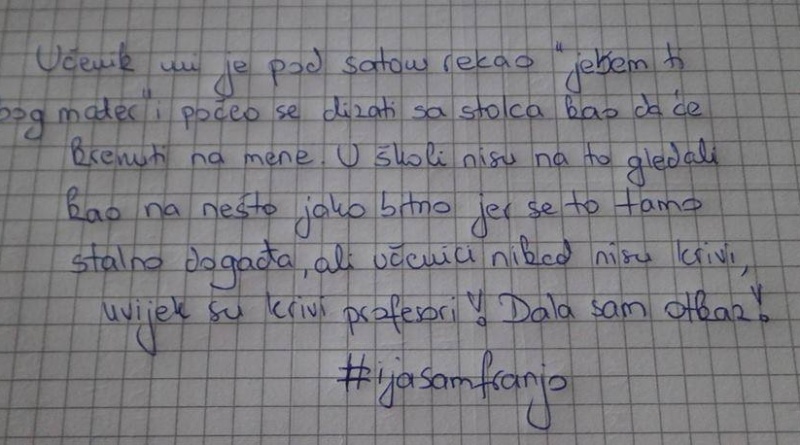 Učenik mi je pod satom rekao "jebem ti
bog mater" i počeo se dizati sa stolca kao da će
krenuti na mene. U školi nisu na to gledali
kao na nešto jako bitno jer se to tamo
stalno događa, ali učenici nikad nisu krivi,
uvijek su krivi profesori! Dala sam otkaz!
#ijasamfranjo